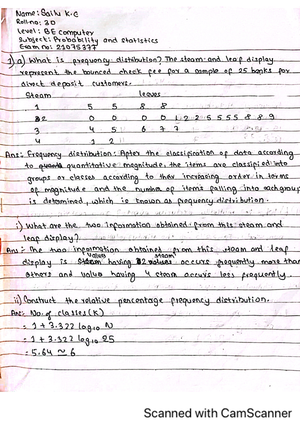 Name: Sailu K.C
Roll no: 30
Level: BE computer
Subject: Probability and statistics
Exam no: 21075377
1) a) What is frequency distribution? The steam and leaf display
represent the bounced check fee for a sample of 25 books for
direct deposit customers.
Steam leaves
1 5 5 8 8
2 0 0 0 0 1 2 2 5 5 5 5 8 8 9
3 4 5 6 7 7
4 1 2
Ans: Frequency distribution: After the classification of data according
to quantitative magnitude, the items are classified into
groups or classes according to their increasing order in terms
of magnitude and the number of items falling into each group
is determined, which is known as frequency distribution.
i) What are the two information obtained from this steam and
leaf display?
Ans :- The two information obtained from this steam and leaf
display is value having steam 2 occurs frequently more than
others and value having 4 steam occurs less frequently.
ii) Construct the relative percentage frequency distribution.
Ans: No. of classes (K)
= 1 + 3.322 log10 N
= 1 + 3.322 log10 25
= 5.64 ≈ 6
Scanned with CamScanner